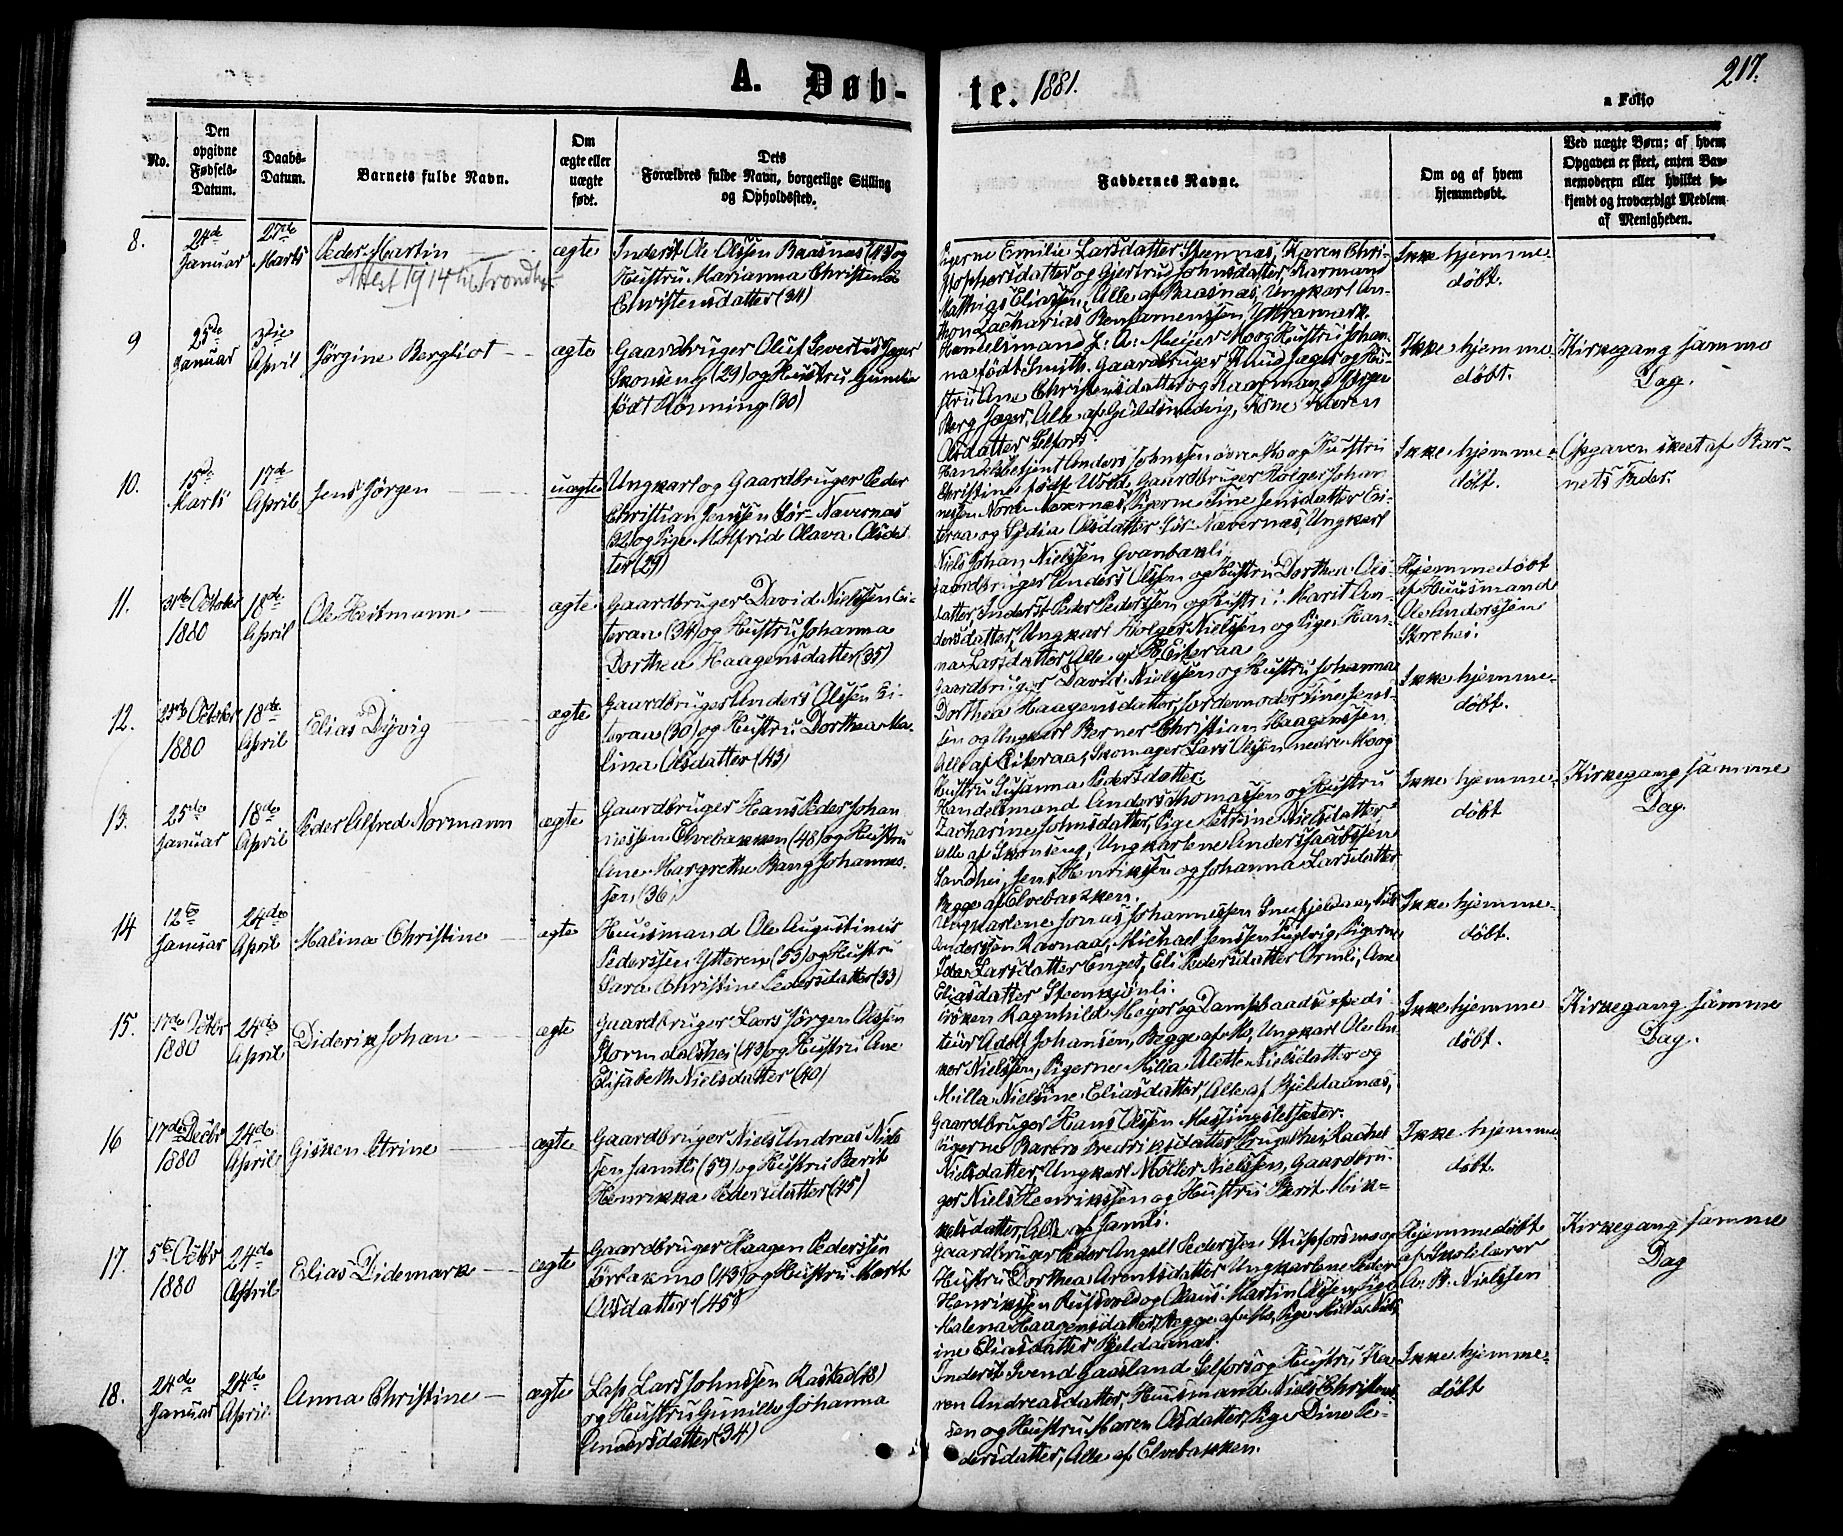 A. Døb-
te. 1881.
217.
a Folio
No.
Den opgivne Fødsels-Datum.
Daabs-Datum.
Barnets fulde Navn.
Om ægte eller uægte født.
Dets Forældres fulde Navn, borgerlige Stilling og Opholdssted.
Faddernes Navne.
Om og af hvem hjemmedøbt.
Ved uægte Børn; af hvem Opgaven er skeet, enten Barnemoderen eller hvilket bekjendt og troværdigt Medlem af Menigheden.
8.
24de Januar
27de Marts
Peder Martin
Attest 1914 til Trondhj.
ægte
Inderst Ole Olssen Baasnæs (43) og
Hustru Marianna Christence
Christensdatter (34)
Pigerne Emilie Larsdatter Stennæs, Karen Chri-
stophersdatter og Gjertrud Johnsdatter, Karmand
Mathias Eliassen, Alle af Baasnæs, Ungkarl An-
thon Zacharias Benjamenssen Yttramark.
Ikke hjemme-
døbt.
9
25de Januar
3die April
Jørgine Bergliot
ægte
Gaardbruger Oluf Severtus Jæger
Skonseng (29) og Hustru Gunelia
født Rønning (30)
Handelsmand L. A. Meijer Mo og Hustru Johan-
na født Smith. Gaardbruger Knud Jæger og Hu-
stru Ane Christensdatter og Kaarmand Jørgen
Berg Jæger, Alle af Guldsmedvig, Kone Karen
Olsdatter Selfors.
Ikke hjemme-
døbt.
Kirkegang samme
Dag.
10.
15de Marts
17de April
Jens Jørgen
uægte
Ungkarl og Gaardbruger Peder
Christian Jenssen Sør-Nævernæs
(32) og Pige Malfrid Olava Olsdat
ter (29)
Handelsbetjent Anders Johnssen øvre Mo og Hustru
Christine født Wold, Gaardbruger Holger Johan
nessen Nordre Nævernæs, Pigerne Sine Jensdatter Ei-
teraa og Lydia Olsdatter Sør-Nævernæs, Ungkarl
Niels Johan Nielssen Grønbækli.
Ikke hjemme-
døbt.
Opgaven skeet af Bar-
nets Fader.
11.
31te October 1880
18de April
Ole Heitmann
ægte
Gaardbruger David Nielssen Ei-
teraa (34) og Hustru Johanna
Dorthea Haagensdatter (35)
Gaardbruger Anders Olssen og Hustru Dorthea Ols-
datter, Inderst Peder Pederssen og Hustru Marit An-
dersdatter, Ungkarl Holger Nielssen og Pige Han-
na Larsdatter, Alle af Eiteraa
Hjemmedøbt
af Huusmand
Ole Anderssen
Storehei.
12.
23de October 1880
18de April
Elias Dyvig
ægte
Gaardbruger Anders Olssen Ei-
teraa (30) og Hustru Dorthea Ma-
lina Olsdatter (43)
Gaardbruger David Nielssen og Hustru Johanna
Dorthea Haagensdatter, Jordemoder Tine Jens-
sen og Ungkarl Berner Christian Haagenssen
Alle af Eiteraa, Skomager Lars Olssen nedre Mo og
Hustru Susanna Pedersdatter.
Ikke hjemme-
døbt.
13.
25de Januar
18de April
Peder Alfred Normann
ægte
Gaardbruger Hans Peder Johan
nessen Elvebakken (48) og Hustru
Ane Margrethe Bang Johannes
sen (36)
Handelsmand Anders Thomassen og Hustru
Zacharine Johnsdatter, Pige Petrine Nielsdatter
Alle af Skonseng, Ungkarlene Anders Jacobssen
Sandhei, Jens Henrikssen og Johanna Larsdatter
Begge af Elvebakken.
Ikke hjemme-
døbt
Kirkegang samme
Dag.
14
12te Januar
24de April
Malina Christine
ægte
Huusmand Ole Augustinus
Pederssen Ytteren (55) og Hustru
Sara Christine Pedersdatter (33)
Ungkarlene Jonas Johannessen Snefjeldaas, Niels
Anderssen Ravnaa, Michael Jenssen Fuglvig, Pigerne
Ida Larsdatter Enget, Eli Pedersdatter Ormli, Ane
Eliasdatter Steenkjønli.
Ikke hjemme-
døbt.
15.
17de Octbr 1880
24de April
Diderik Johan
ægte
Gaardbruger Lars Jørgen Olssen
Stormdalshei (43) og Hustru Ane
Elisabeth Nielsdatter (40)
Frøken Ragnhild Meyer og Dampbaadsexpedi-
tiur Adolf Johansen, Begge af Mo, Ungkarl Ole An-
ker Nielssen, Pigerne Milia Alette Nielsdatter og
Milla Nielsine Eliasdatter, Alle af Bjeldaanæs,
Gaardbruger Hans Olssen Messingsletsæter.
Ikke hjemme
døbt.
Kirkegang samme
Dag.
16
17de Decbr 1880
24de April
Gisken Petrine
ægte
Gaardbruger Niels Andreas Niels
sen Jamtli (59) og Hustru Berit
Henrikka Pedersdatter (45)
Pigerne Barbro Fredriksdatter Krupathei, Rachel
Nielsdatter, Ungkarl Møller Nielssen, Gaardbru-
ger Niels Henrikssen og Hustru Berit Mik-
kelsdatter, Alle af Jamtli.
Ikke hjemme
døbt.
17.
5te Octbr 1880
24de April
Elias Didemark
ægte
Gaardbruger Haagen Pederssen
Tørbækmo (43) og Hustru Marit
Olsdatter (45)
Gaardbruger Peder Angell Pederssen Stupforsmo og
Hustru Dorthea Arentsdatter Ungkarlene Peder
Henrikssen Rufsvold og Olaus Martin Olssen, Pige
Malena Haagensdatter, Begge af Mo, Pige Milla Niels
ine Eliasdatter Bjeldaanæs.
Hjemmedøbt
af Skolelærer
A. B. Nielssen
Kirkegang samme
Dag
18.
24de Januar
24de April
Anna Christine
ægte
Lap Lars Johnssen Rastad (48)
og Hustru Gunille Johanna
Andersdatter (34)
Inderst Svend Gaasland Selfors og Hustru Ka-
ren Andreasdatter, Huusmand Niels Christen-
sen og Hustru Maren Olsdatter, Pige Dine Pe-
dersdatter, Alle af Elvebakken.
Ikke hjemme-
døbt